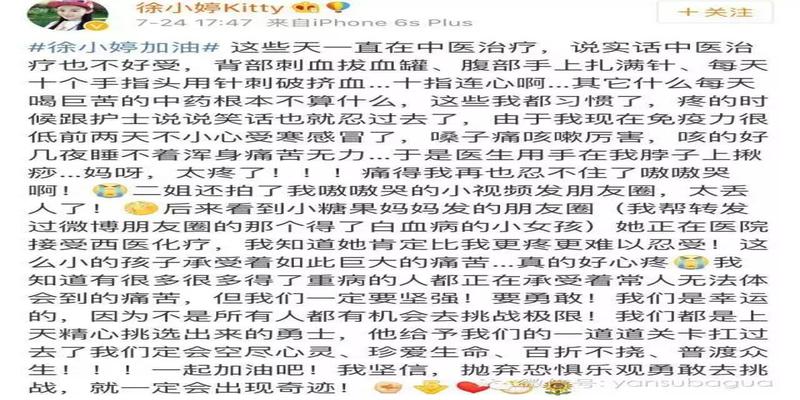 徐小婷Kitty
7-24 17:47 来自iPhone 6s Plus
+关注
#徐小婷加油# 这些天一直在中医治疗，说实话中医治
疗也不好受，背部刺血拔血罐、腹部手上扎满针、每天
十个手指头用针刺破挤血...十指连心啊...其它什么每天
喝巨苦的中药根本不算什么，这些我都习惯了，疼的时
候跟护士说说笑话也就忍过去了，由于我现在免疫力很
低前两天不小心受寒感冒了，嗓子痛咳嗽厉害，咳的好
几夜睡不着浑身痛苦无力...于是医生用手在我脖子上揪
痧...妈呀，太疼了！！！痛得我再也忍不住了嗷嗷哭
啊！😭二姐还拍了我嗷嗷哭的小视频发朋友圈，太丢
人了！后来看到小糖果妈妈发的朋友圈（我帮转发
过微博朋友圈的那个得了白血病的小女孩）她正在医院
接受西医化疗，我知道她肯定比我更疼更难以忍受！这
么小的孩子承受着如此巨大的痛苦...真的好心疼😭我
知道有很多很多得了重病的人都正在承受着常人无法体
会到的痛苦，但我们一定要坚强！要勇敢！我们是幸运
的，因为不是所有人都有机会去挑战极限！我们都是上
天精心挑选出来的勇士，他给予我们的一道道关卡扛过
去了我们定会空尽心灵、珍爱生命、百折不挠、普渡众
生！！！一起加油吧！我坚信，抛弃恐惧乐观勇敢去挑
战，就一定会出现奇迹！
号: yansubagua